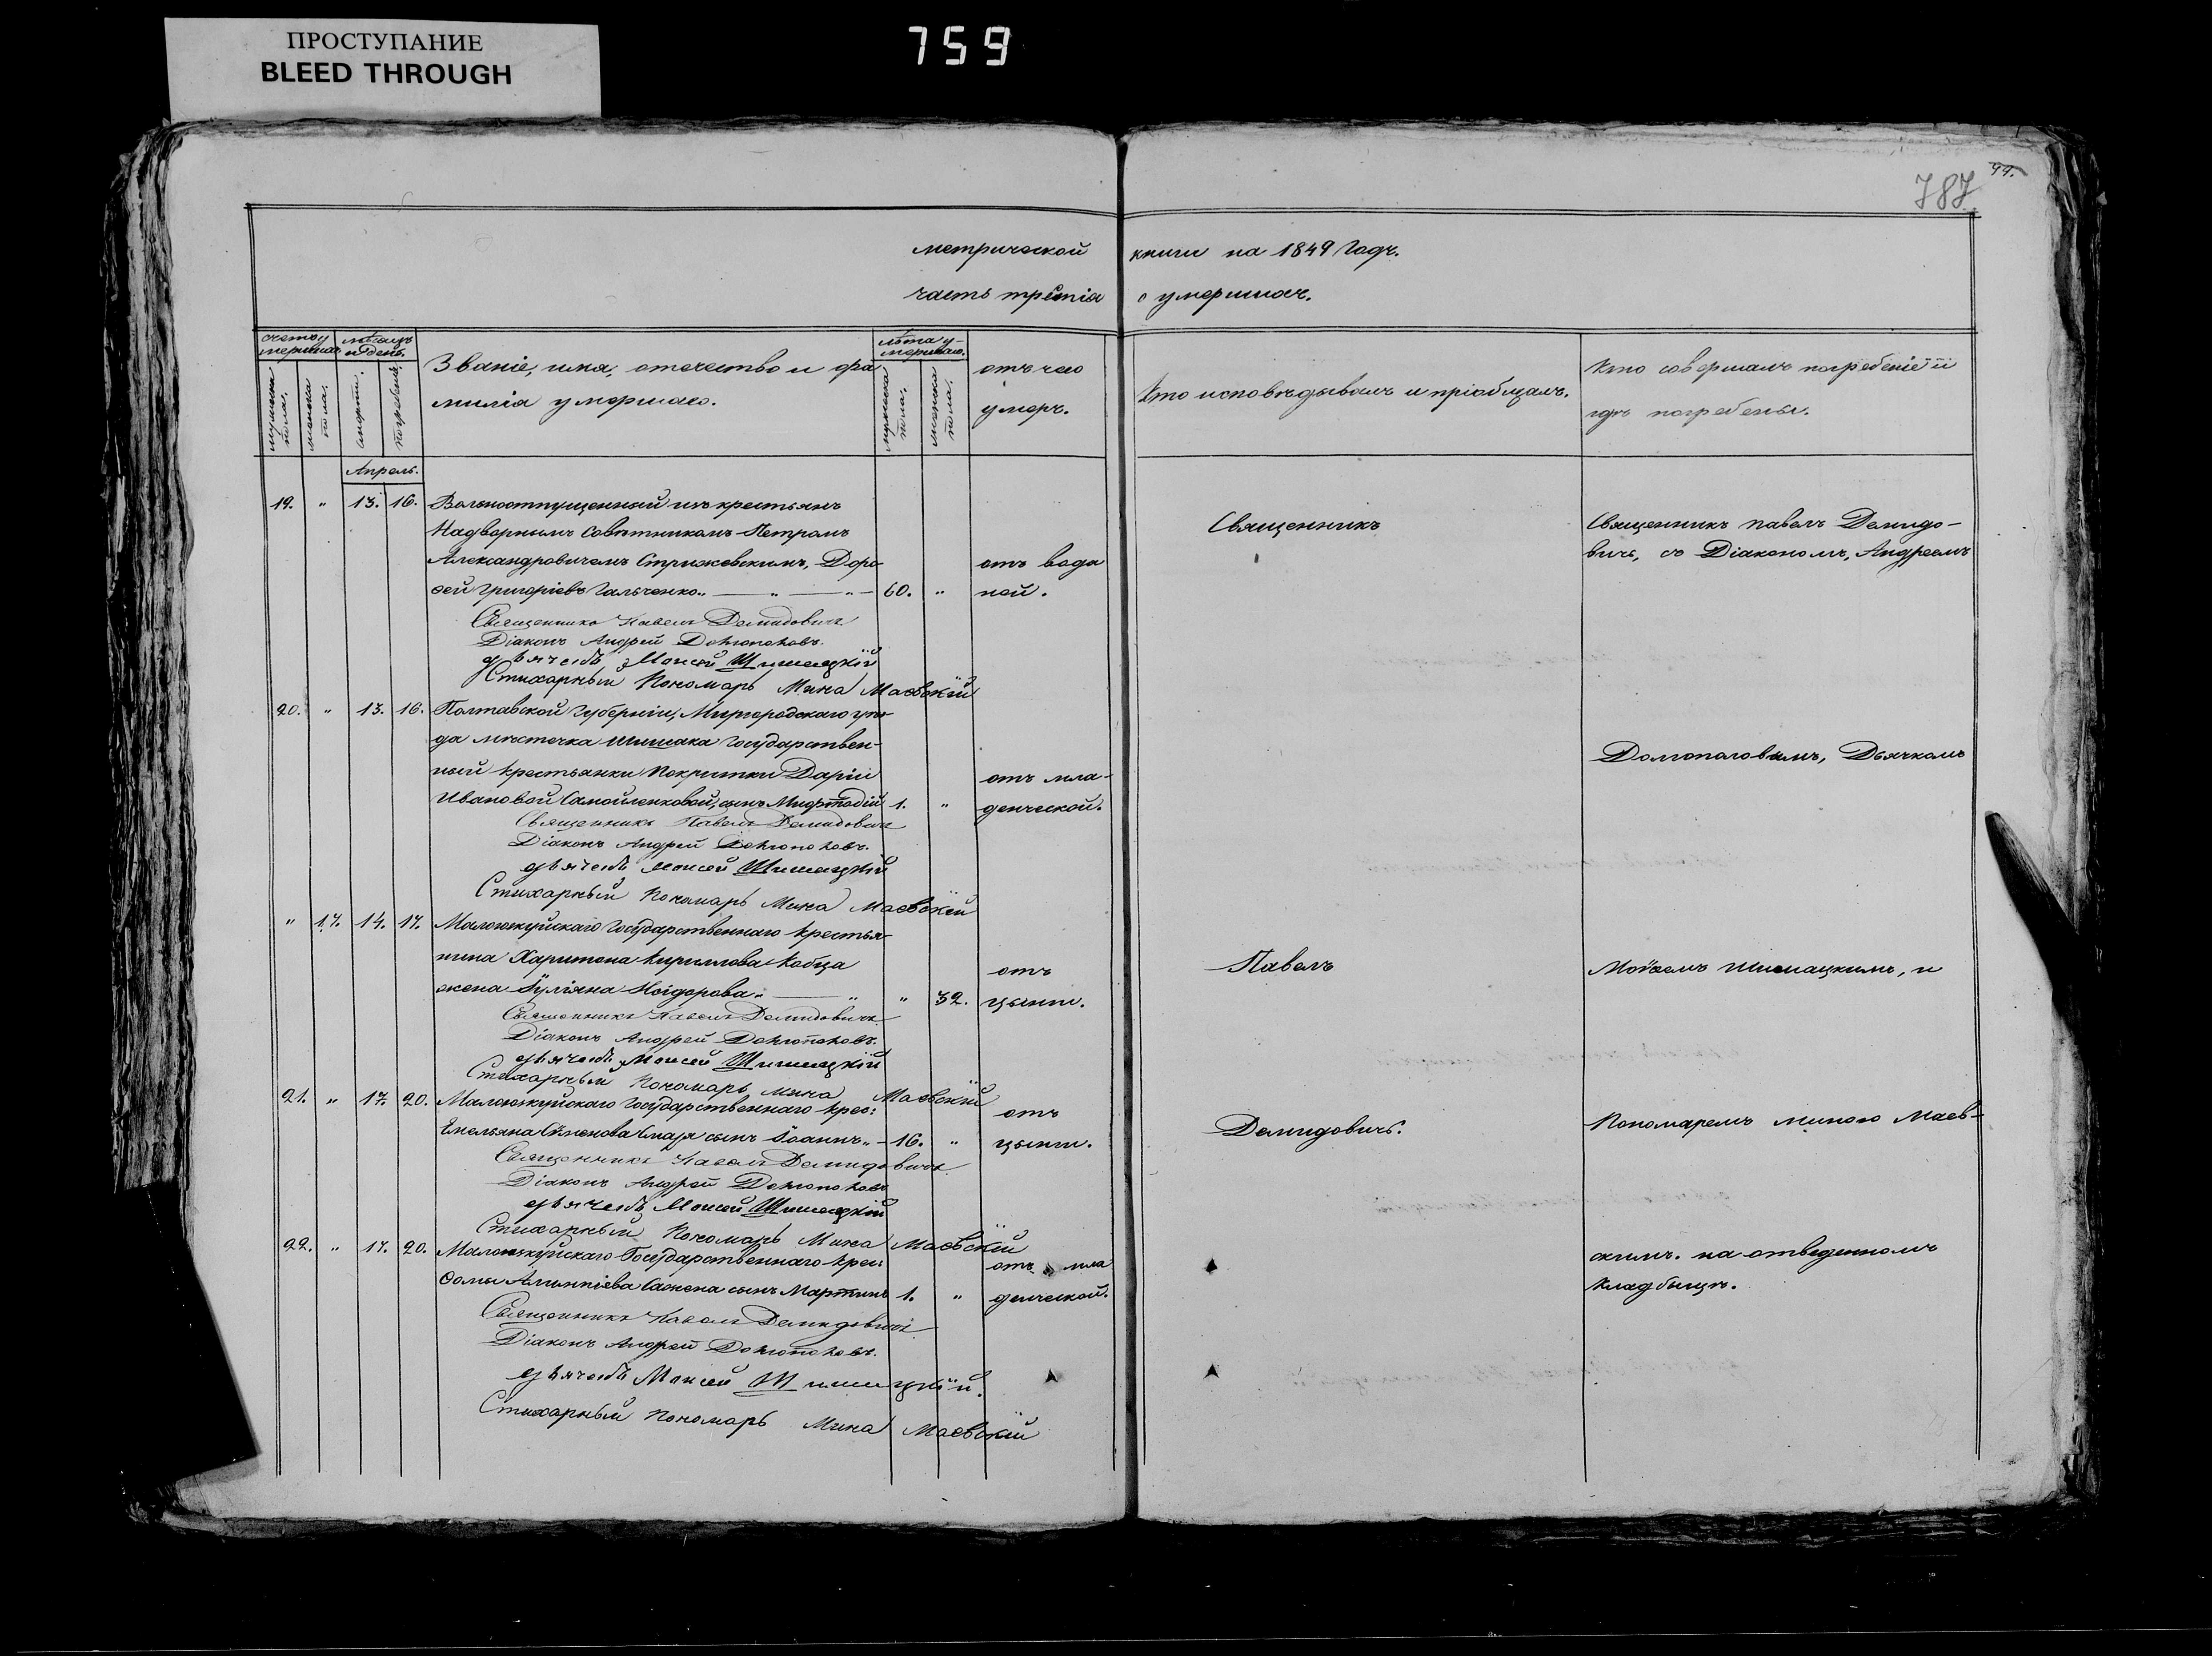 ПРОСТУПАНИЕ
BLEED THROUGH
759
787
99.
метрической книги на 1849 Годъ.
часть третіа о умершихъ.
счетъ умершихъ
мѣсяцъ и день.
Званіе, имя, отечество и фа
миліа умершаго.
лѣта у-
мершаго.
отъ чего
умеръ.
Кто исповѣдывалъ и пріобщалъ.
Кто совершалъ погребеніе и
гдѣ погребены.
мужска пола.
женска пола.
смерти.
погребенія.
мужска пола.
женска пола.
Апрель.
19. " 13. 16. Вольноотпущенный изъ крестьянъ
Надворнымъ Совѣтникомъ Петромъ
Александровичемъ Стрижевскимъ, Доро-
ѳей Григоріевъ Гальченко " — " — " — 60. " отъ водя
ной.
Священникъ Павелъ Демидовичъ
Діаконъ Андрей Долгополовъ.
дьячекъ Моисей Шишацкій
Стихарный Пономарь Мина Маевскій
20. " 13. 16. Полтавской Губерніи, Миргородскаго уѣз-
да мѣстечка Шишака Государствен-
ный крестьянки Покритки Даріи
Ивановой Самойленковой, сынъ Меѳодій 1. " отъ мла-
денческой.
Священникъ Павелъ Демидовичъ
Діаконъ Андрей Долгополовъ.
дьячекъ Моисей Шишацкій
Стихарный Пономарь Мина Маевскій
" 17. 14. 17. Государственнаго крестья-
нина Харитона Кириллова Кобца
жена Іуліяна " — " " 32. отъ
цынги.
Священникъ Павелъ Демидовичъ
Діаконъ Андрей Долгополовъ.
дьячекъ Моисей Шишацкій
Стихарный Пономарь Мина Маевскій
21. " 17. 20. Государственнаго крес:
Емельяна Сѣменова сынъ Іоаннъ " — 16. " отъ
цынги.
Священникъ Павелъ Демидовичъ
Діаконъ Андрей Долгополовъ
дьячекъ Моисей Шишацкій
Стихарный Пономарь Мина Маевскій
22. " 17. 20. Государственнаго крес:
Ѳомы сынъ Мартинъ 1. " отъ мла
денческой.
Священникъ Павелъ Демидовичъ
Діаконъ Андрей Долгополовъ.
дьячекъ Моисей Шишацкій.
Стихарный Пономарь Мина Маевскій
Священникъ
Павелъ
Демидовичъ.
Священникъ Павелъ Демидо-
вичъ, съ Діакономъ, Андреемъ
Долгополовымъ, Дьячкомъ
Моѵсеемъ Шишацкимъ, и
Пономаремъ Миною Маев-
скимъ. на отведенномъ
кладбищѣ.